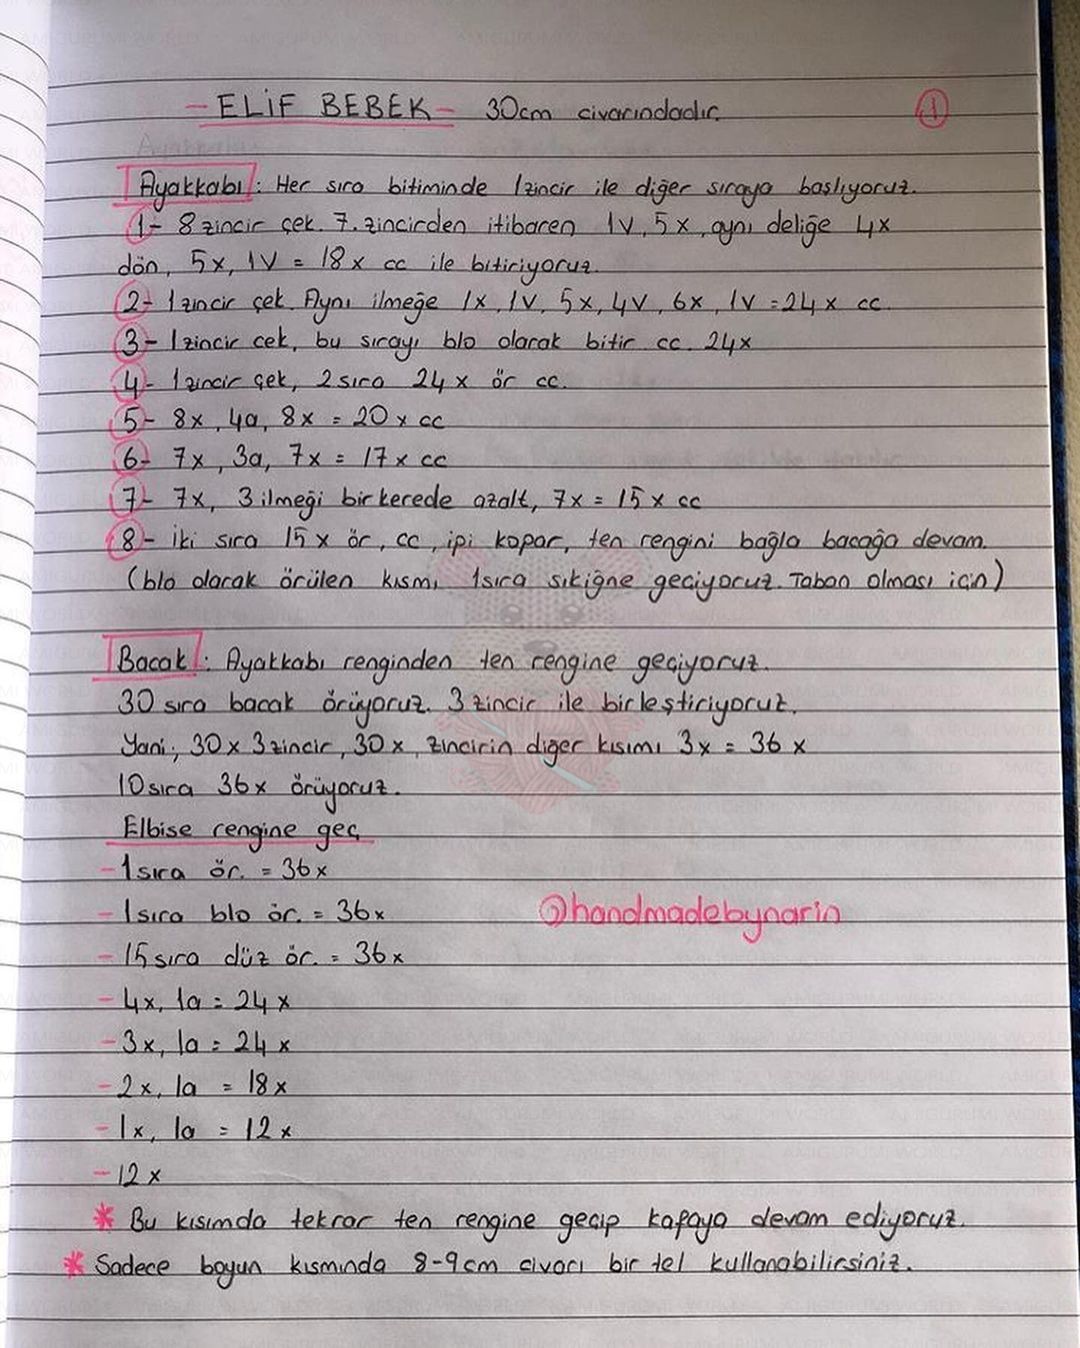 - ELİF BEBEK - 30cm civarındadır. 1
Ayakkabı: Her sıra bitiminde 1zincir ile diğer sıraya başlıyoruz.
1- 8 zincir çek. 7. zincirden itibaren 1V, 5x, aynı deliğe 4x
dön, 5x, 1V = 18x cc ile bitiriyoruz.
2- 1 zincir çek. Aynı ilmeğe 1x, 1V, 5x, 4V, 6x, 1V = 24x cc.
3- 1 zincir cek, bu sırayı blo olarak bitir cc. 24x
4- 1 zincir çek, 2 sıra 24x ör cc.
5- 8x, 4a, 8x = 20x cc
6- 7x, 3a, 7x = 17x cc
7- 7x, 3 ilmeği bir kerede azalt, 7x = 15x cc
8- iki sıra 15x ör, cc, ipi kopar, ten rengini bağla bacağa devam.
(blo olarak örülen kısmı 1sıra sıkiğne geçiyoruz. Taban olması için)
Bacak: Ayakkabı renginden ten rengine geçiyoruz.
30 sıra bacak örüyoruz. 3 zincir ile birleştiriyoruz.
Yani; 30x 3 zincir, 30x, zincirin diğer kısımı 3x = 36x
10 sıra 36x örüyoruz.
Elbise rengine geç
- 1 sıra ör. = 36x
- 1 sıra blo ör. = 36x
@handmadebynarin
- 15 sıra düz ör. = 36x
- 4x, 1a = 24x
- 3x, 1a = 24x
- 2x, 1a = 18x
- 1x, 1a = 12x
- 12x
* Bu kısımda tekrar ten rengine geçip kafaya devam ediyoruz.
* Sadece boyun kısmında 8-9cm civarı bir tel kullanabilirsiniz.